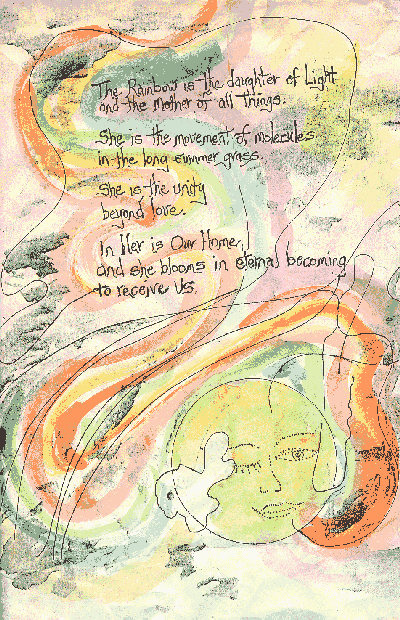 The Rainbow is the daughter of Light
and the mother of all things.
She is the movement of molecules
in the long summer grass.
She is the unity
beyond love.
In Her is Our Home,
and she blooms in eternal becoming
to receive Us.